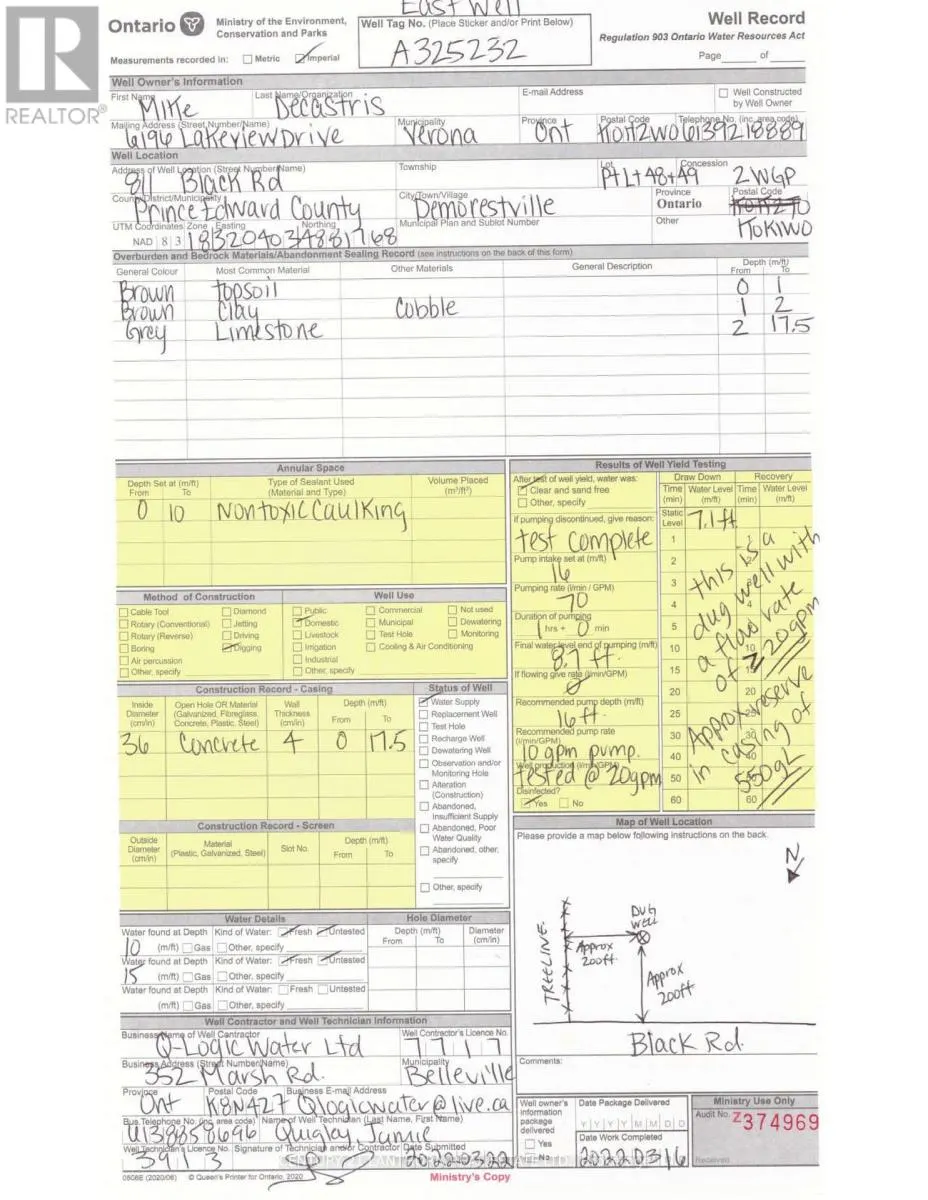 East Well
Ontario
Ministry of the Environment,
Conservation and Parks
Well Tag No. (Place Sticker and/or Print Below)
A325232
Well Record
Regulation 903 Ontario Water Resources Act
Measurements recorded in: Metric Imperial
Page of
REALTOR®
Well Owner's Information
First Name Last Name/Organization E-mail Address Well Constructed by Well Owner
Mike Decastris
Mailing Address (Street Number/Name) Municipality Province Postal Code Telephone No. (inc. area code)
6196 Lakeview Drive Verona Ont K0H2W0 6139218889
Well Location
Address of Well Location (Street Number/Name) Township Lot Concession
811 Black Rd Pt Lt 48+49 2WGP
County/District/Municipality City/Town/Village Province Postal Code
Prince Edward County Demorestville Ontario
UTM Coordinates Zone Easting Northing Municipal Plan and Sublot Number Other
NAD 8 3 183204034881768 K0K1W0
Overburden and Bedrock Materials/Abandonment Sealing Record (see instructions on the back of this form)
General Colour Most Common Material Other Materials General Description Depth (m/ft) From To
Brown topsoil 0 1
Brown Clay Cobble 1 2
Grey Limestone 2 17.5
Annular Space
Depth Set at (m/ft) From To Type of Sealant Used (Material and Type) Volume Placed (m³/ft³)
0 10 Nontoxic Caulking
Method of Construction Well Use
Cable Tool Diamond Public Commercial Not used
Rotary (Conventional) Jetting Domestic Municipal Dewatering
Rotary (Reverse) Driving Livestock Test Hole Monitoring
Boring Digging Irrigation Cooling & Air Conditioning
Air percussion Industrial
Other, specify Other, specify
Construction Record - Casing
Inside Diameter (cm/in) Open Hole OR Material (Galvanized, Fibreglass, Concrete, Plastic, Steel) Wall Thickness (cm/in) Depth (m/ft) From To
36 Concrete 4 0 17.5
Status of Well
Water Supply
Replacement Well
Test Hole
Recharge Well
Dewatering Well
Observation and/or Monitoring Hole
Alteration (Construction)
Abandoned, Insufficient Supply
Abandoned, Poor Water Quality
Abandoned, other, specify
Other, specify
Construction Record - Screen
Outside Diameter (cm/in) Material (Plastic, Galvanized, Steel) Slot No. Depth (m/ft) From To
Water Details
Water found at Depth Kind of Water: Fresh Untested
10 (m/ft) Gas Other, specify
Water found at Depth Kind of Water: Fresh Untested
15 (m/ft) Gas Other, specify
Water found at Depth Kind of Water: Fresh Untested
(m/ft) Gas Other, specify
Hole Diameter
Depth (m/ft) From To Diameter (cm/in)
Well Contractor and Well Technician Information
Business Name of Well Contractor Well Contractor's Licence No.
Q-Logic Water Ltd 7 7 1 7
Business Address (Street Number/Name) Municipality
352 Marsh Rd. Belleville
Province Postal Code Business E-mail Address
Ont K8N4Z7 Qlogicwater@live.ca
Bus. Telephone No. (inc. area code) Name of Well Technician (Last Name, First Name)
6138858696 Quigley, Jamie
Well Technician's Licence No. Signature of Technician and/or Contractor Date Submitted
3 9 1 3 20220322
0506E (2020/06) © Queen's Printer for Ontario, 2020
Ministry's Copy
Results of Well Yield Testing
After test of well yield, water was:
Clear and sand free
Other, specify
If pumping discontinued, give reason:
test complete
Pump intake set at (m/ft)
16
Pumping rate (l/min / GPM)
70
Duration of pumping
1 hrs + 0 min
Final water level end of pumping (m/ft)
8.7 ft.
If flowing give rate (l/min/GPM)
0
Recommended pump depth (m/ft)
16 ft.
Recommended pump rate (l/min/GPM)
10 gpm pump.
Well production (l/min/GPM)
tested @ 20gpm
Disinfected?
Yes No
Draw Down Recovery
Time (min) Water Level (m/ft) Time (min) Water Level (m/ft)
Static Level 7.1ft
1 1
2 2
3
4 4
5
10 10
15 15
20 20
25 25
30 30
40 40
50
60 60
this is a
dug well with
a flow rate
of 20gpm
Approx reserve
in casing of
550gL
Map of Well Location
Please provide a map below following instructions on the back.
N
Dug
well
TREELINE
Approx
200ft
Approx
200ft
Black Rd.
Comments:
Well owner's information package delivered
Yes
No
Date Package Delivered
Y Y Y Y M M D D
Date Work Completed
20220316
Ministry Use Only
Audit No. Z374969
Received